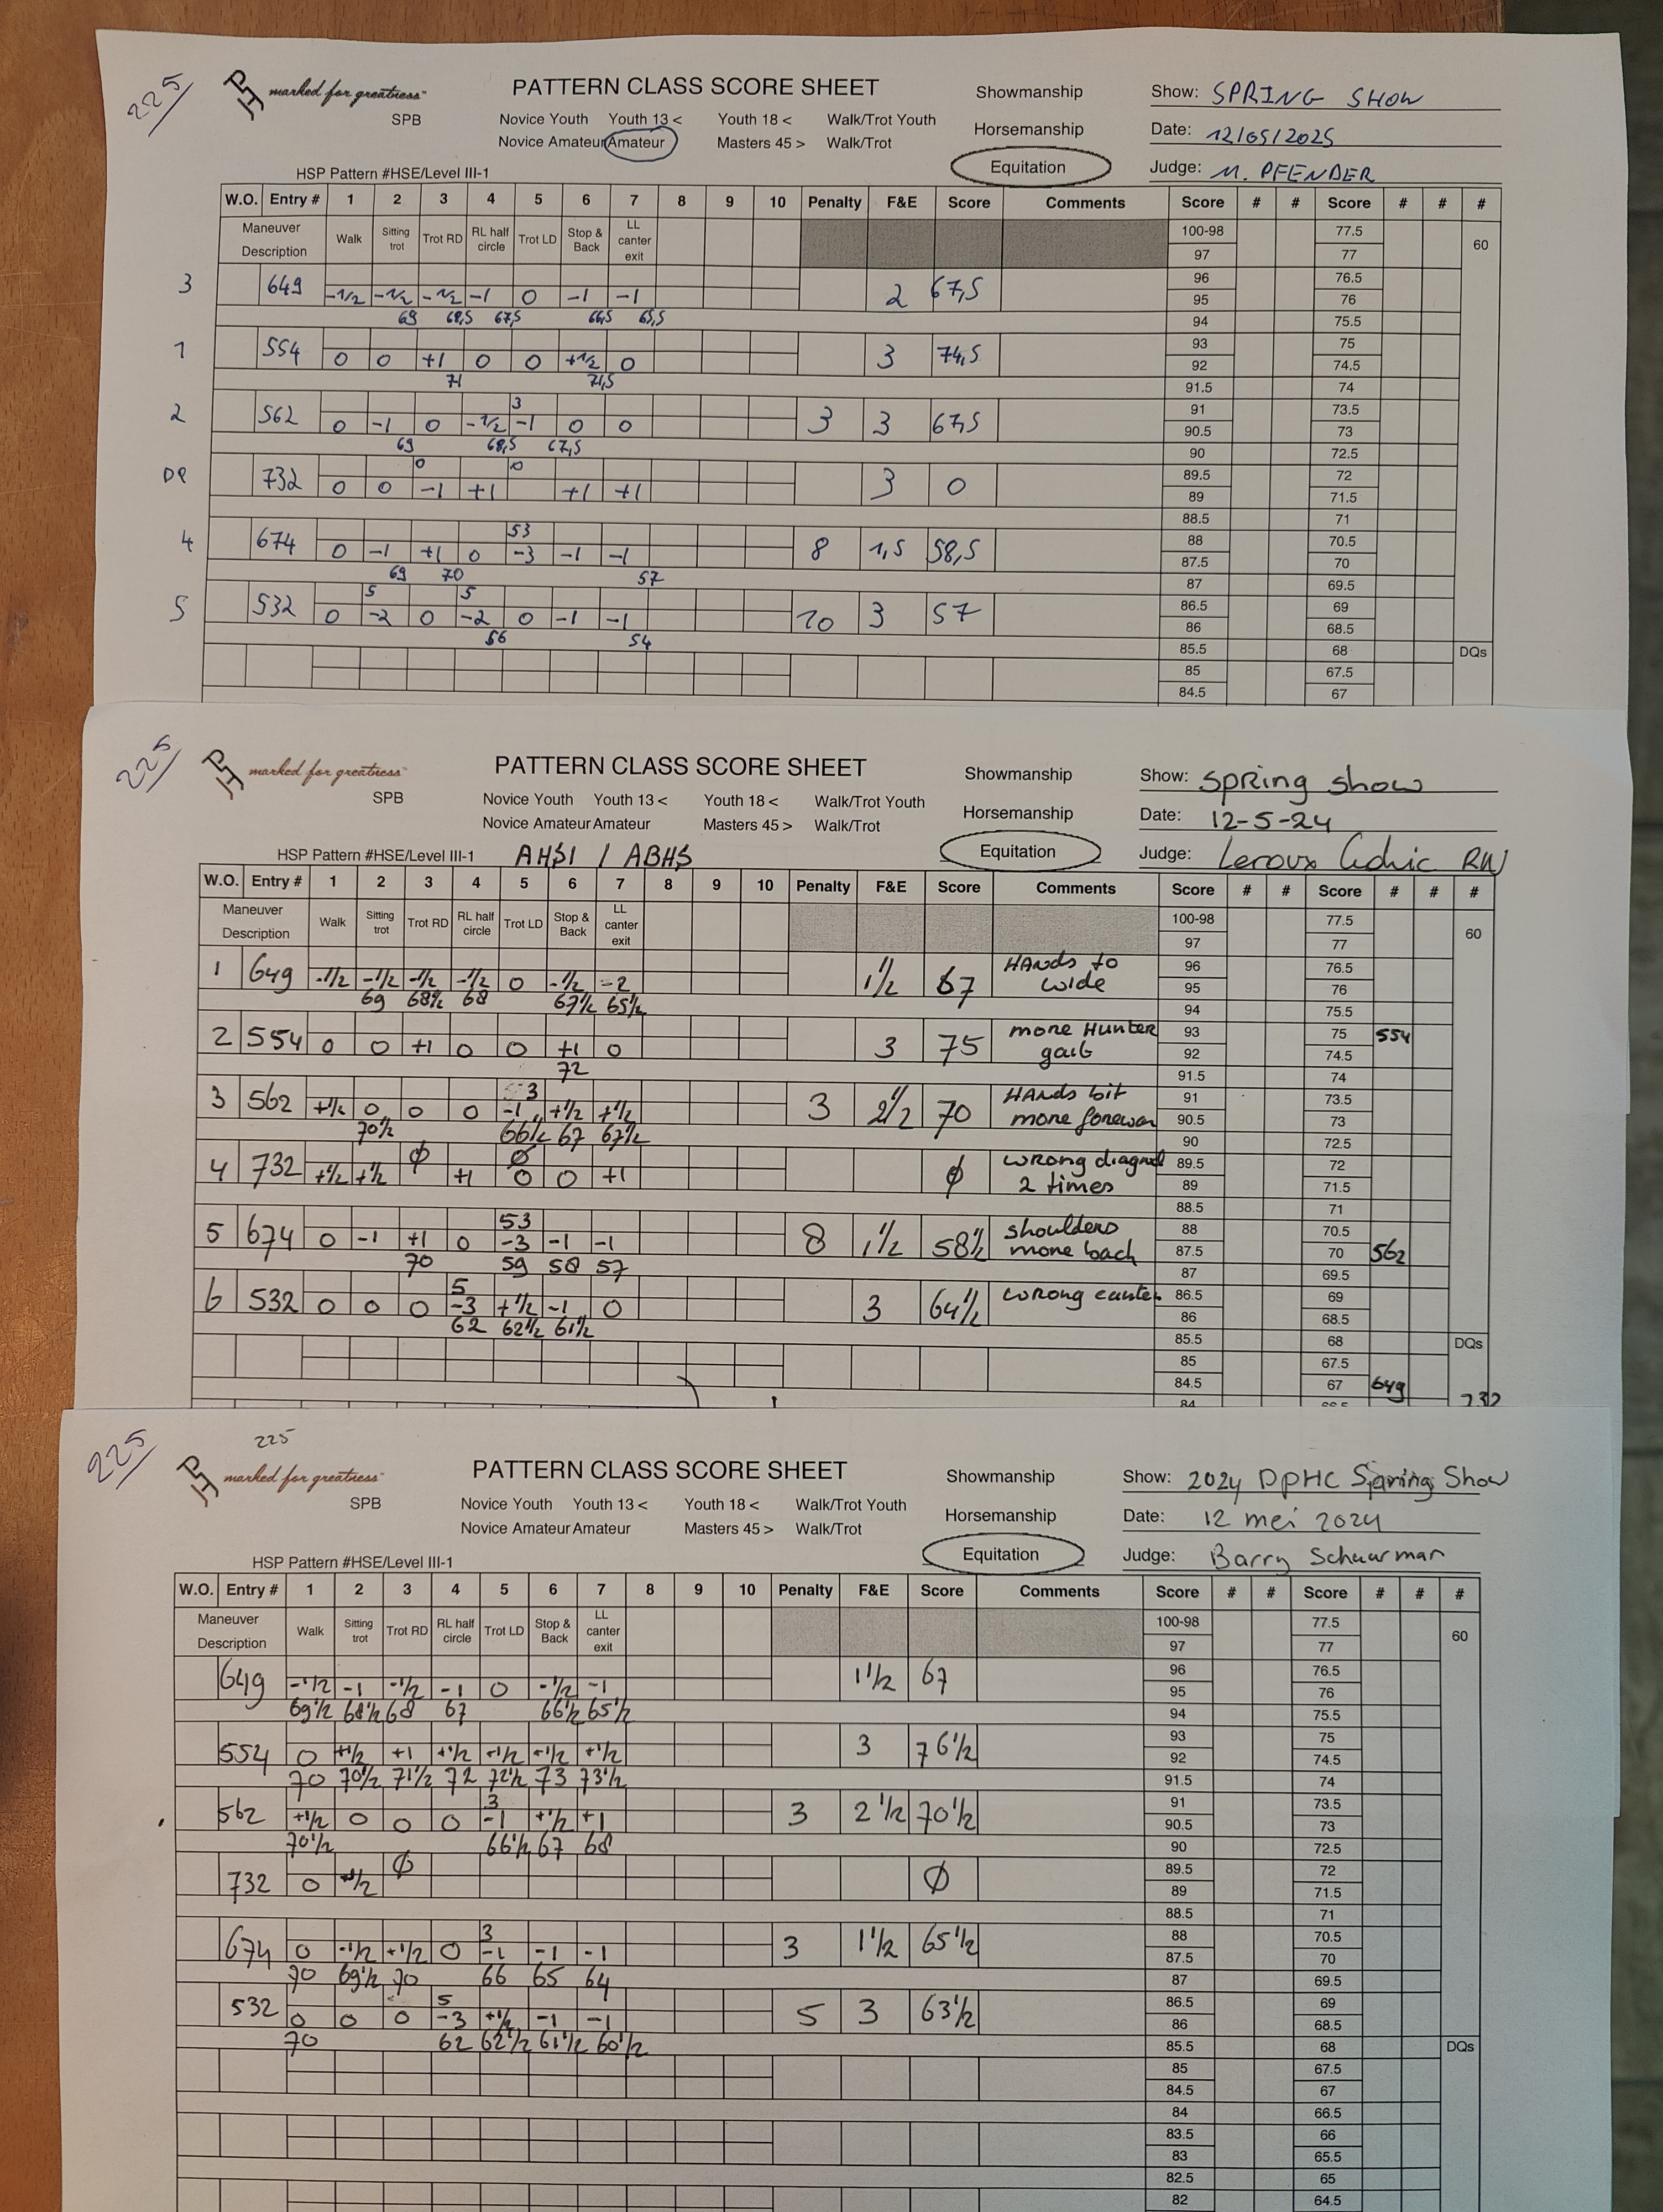 225
marked for greatness™
SPB
PATTERN CLASS SCORE SHEET
Novice Youth Youth 13 < Youth 18 < Walk/Trot Youth
Novice Amateur Amateur Masters 45 > Walk/Trot
Showmanship
Horsemanship
Equitation
Show: SPRING SHOW
Date: 12/05/2025
Judge: M. PFENDER
HSP Pattern #HSE/Level III-1
W.O. Entry # 1 2 3 4 5 6 7 8 9 10 Penalty F&E Score Comments Score # # Score # # #
Maneuver Description Walk Sitting trot Trot RD RL half circle Trot LD Stop & Back LL canter exit
3 649 -1/2 -1/2 -1/2 -1 0 -1 -1 2 67,5
69 68,5 67,5 66,5 65,5
1 554 0 0 +1 0 0 +1/2 0 3 74,5
71 71,5
3
2 562 0 -1 0 -1/2 -1 0 0 3 3 67,5
69 68,5 67,5
0 0
DQ 732 0 0 -1 +1 +1 +1 3 0
53
4 674 0 -1 +1 0 -3 -1 -1 8 1,5 58,5
69 70 57
5 5
5 532 0 -2 0 -2 0 -1 -1 10 3 57
56 54
100-98 77.5
60
97 77
96 76.5
95 76
94 75.5
93 75
92 74.5
91.5 74
91 73.5
90.5 73
90 72.5
89.5 72
89 71.5
88.5 71
88 70.5
87.5 70
87 69.5
86.5 69
86 68.5
85.5 68 DQs
85 67.5
84.5 67
225
marked for greatness™
SPB
PATTERN CLASS SCORE SHEET
Novice Youth Youth 13 < Youth 18 < Walk/Trot Youth
Novice Amateur Amateur Masters 45 > Walk/Trot
Showmanship
Horsemanship
Equitation
Show: Spring show
Date: 12-5-24
Judge: Leroux Cedric RW
HSP Pattern #HSE/Level III-1 AHSI / ABHS
W.O. Entry # 1 2 3 4 5 6 7 8 9 10 Penalty F&E Score Comments Score # # Score # # #
Maneuver Description Walk Sitting trot Trot RD RL half circle Trot LD Stop & Back LL canter exit
1 649 -1/2 -1/2 -1/2 -1/2 0 -1/2 -2 1 1/2 67 HANds to wide
69 68 1/2 68 67 1/2 65 1/2
2 554 0 0 +1 0 0 +1 0 3 75 more Hunter gait
72
3
3 562 +1/2 0 0 0 -1 +1/2 +1/2 3 2 1/2 70 HANds bit more forewar
70 1/2 66 1/2 67 67 1/2
Ø Ø
4 732 +1/2 +1/2 +1 0 0 +1 Ø wrong diagnol 2 times
53
5 674 0 -1 +1 0 -3 -1 -1 8 1 1/2 58 1/2 shoulders more back
70 59 58 57
5
6 532 0 0 0 -3 +1/2 -1 0 3 64 1/2 wrong canter
62 62 1/2 61 1/2
100-98 77.5
60
97 77
96 76.5
95 76
94 75.5
93 75 554
92 74.5
91.5 74
91 73.5
90.5 73
90 72.5
89.5 72
89 71.5
88.5 71
88 70.5
87.5 70 562
87 69.5
86.5 69
86 68.5
85.5 68 DQs
85 67.5
84.5 67 649
84 66.5 732
225
225
marked for greatness™
SPB
PATTERN CLASS SCORE SHEET
Novice Youth Youth 13 < Youth 18 < Walk/Trot Youth
Novice Amateur Amateur Masters 45 > Walk/Trot
Showmanship
Horsemanship
Equitation
Show: 2024 DpHC Spring Show
Date: 12 mei 2024
Judge: Barry Schuurman
HSP Pattern #HSE/Level III-1
W.O. Entry # 1 2 3 4 5 6 7 8 9 10 Penalty F&E Score Comments Score # # Score # # #
Maneuver Description Walk Sitting trot Trot RD RL half circle Trot LD Stop & Back LL canter exit
649 -1/2 -1 -1/2 -1 0 -1/2 -1 1 1/2 67
69 1/2 68 1/2 68 67 66 1/2 65 1/2
554 0 +1/2 +1 +1/2 +1/2 +1/2 +1/2 3 76 1/2
70 70 1/2 71 1/2 72 72 1/2 73 73 1/2
3
562 +1/2 0 0 0 -1 +1/2 +1 3 2 1/2 70 1/2
70 1/2 66 1/2 67 68
Ø
732 0 +1/2 Ø
3
674 0 -1/2 +1/2 0 -1 -1 -1 3 1 1/2 65 1/2
70 69 1/2 70 66 65 64
5
532 0 0 0 -3 +1/2 -1 -1 5 3 63 1/2
70 62 62 1/2 61 1/2 60 1/2
100-98 77.5
60
97 77
96 76.5
95 76
94 75.5
93 75
92 74.5
91.5 74
91 73.5
90.5 73
90 72.5
89.5 72
89 71.5
88.5 71
88 70.5
87.5 70
87 69.5
86.5 69
86 68.5
85.5 68 DQs
85 67.5
84.5 67
84 66.5
83.5 66
83 65.5
82.5 65
82 64.5